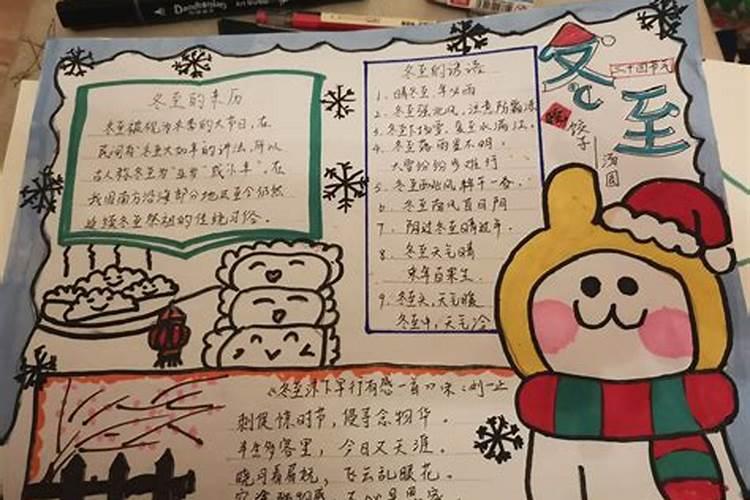 冬至
二十四节气
饺子
汤圆
冬至的来历
冬至被视为冬季的大节日，在
民间有"冬至大如年"的讲法，所以
古人称冬至为"亚岁"或"小年"。在
我国南方沿海部分地区至今仍然
延续冬至祭祖的传统习俗。
冬至的谚语
1、晴冬至，年必雨
2、冬至强北风，注意防霜冻
3、冬至下场雪，夏至水满江。
4、冬至落雨星不明，
大雪纷纷步难行
5、冬至西北风，来年干一春。
6、冬至南风百日阴
7、阴过冬至晴过年。
8、冬至天气晴
来年百果生。
9、冬至头，天气暖
冬至中，天气冷
《冬至床下早行有感一首》宋：刘一止
刺促惊时节，侵寻念物华。
半生多客里，今日又天涯。
晓河看展枕，飞云乱眼花。